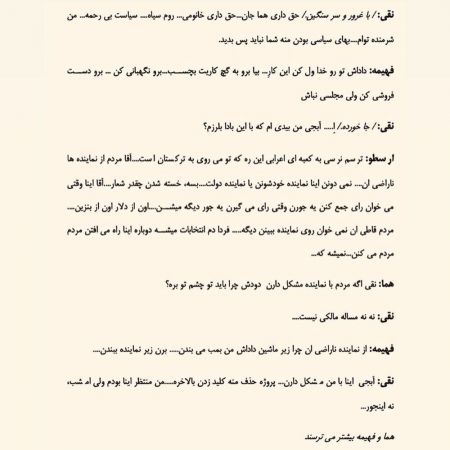 نقی: / با غرور و سر سنگین/ حق داری هما جان...حق داری خانومی... روم سیاه.... سیاست بی رحمه... من
شرمنده توام...بهای سیاسی بودن منه شما نباید پس بدید.
فهیمه: داداش تو رو خدا ول کن این کار... بیا برو به گچ کاریت بچسب...برو نگهبانی کن ... برو دست
فروشی کن ولی مجلسی نباش
نقی: / جا خورده/ اِ..... آبجی من بیدی ام که با این بادا بلرزم؟
ارسطو: ترسم نرسی به کعبه ای اعرابی این ره که تو می روی به ترکستان است....آقا مردم از نماینده ها
ناراضی ان.... نمی دونن اینا نماینده خودشونن یا نماینده دولت....بسه، خسته شدن چقدر شعار....آقا اینا وقتی
می خوان رای جمع کنن یه جورن وقتی رای می گیرن یه جور دیگه میشن...اون از دلار اون از بنزین....
مردم قاطی ان نمی خوان روی نماینده ببینن دیگه..... فردا دم انتخابات میشه دوباره اینا راه می افتن مردم
مردم می کنن...نمیشه که...
هما: نقی اگه مردم با نماینده مشکل دارن دودش چرا باید تو چشم تو بره؟
نقی: نه نه مساله مالکی نیست....
فهیمه: از نماینده ناراضی ان چرا زیر ماشین داداش من بمب می بندن..... برن زیر نماینده ببندن....
نقی: آبجی اینا با من مشکل دارن... پروژه حذف منه کلید زدن بالاخره....من منتظر اینا بودم ولی امشب،
نه اینجور...
هما و فهیمه بیشتر می ترسند